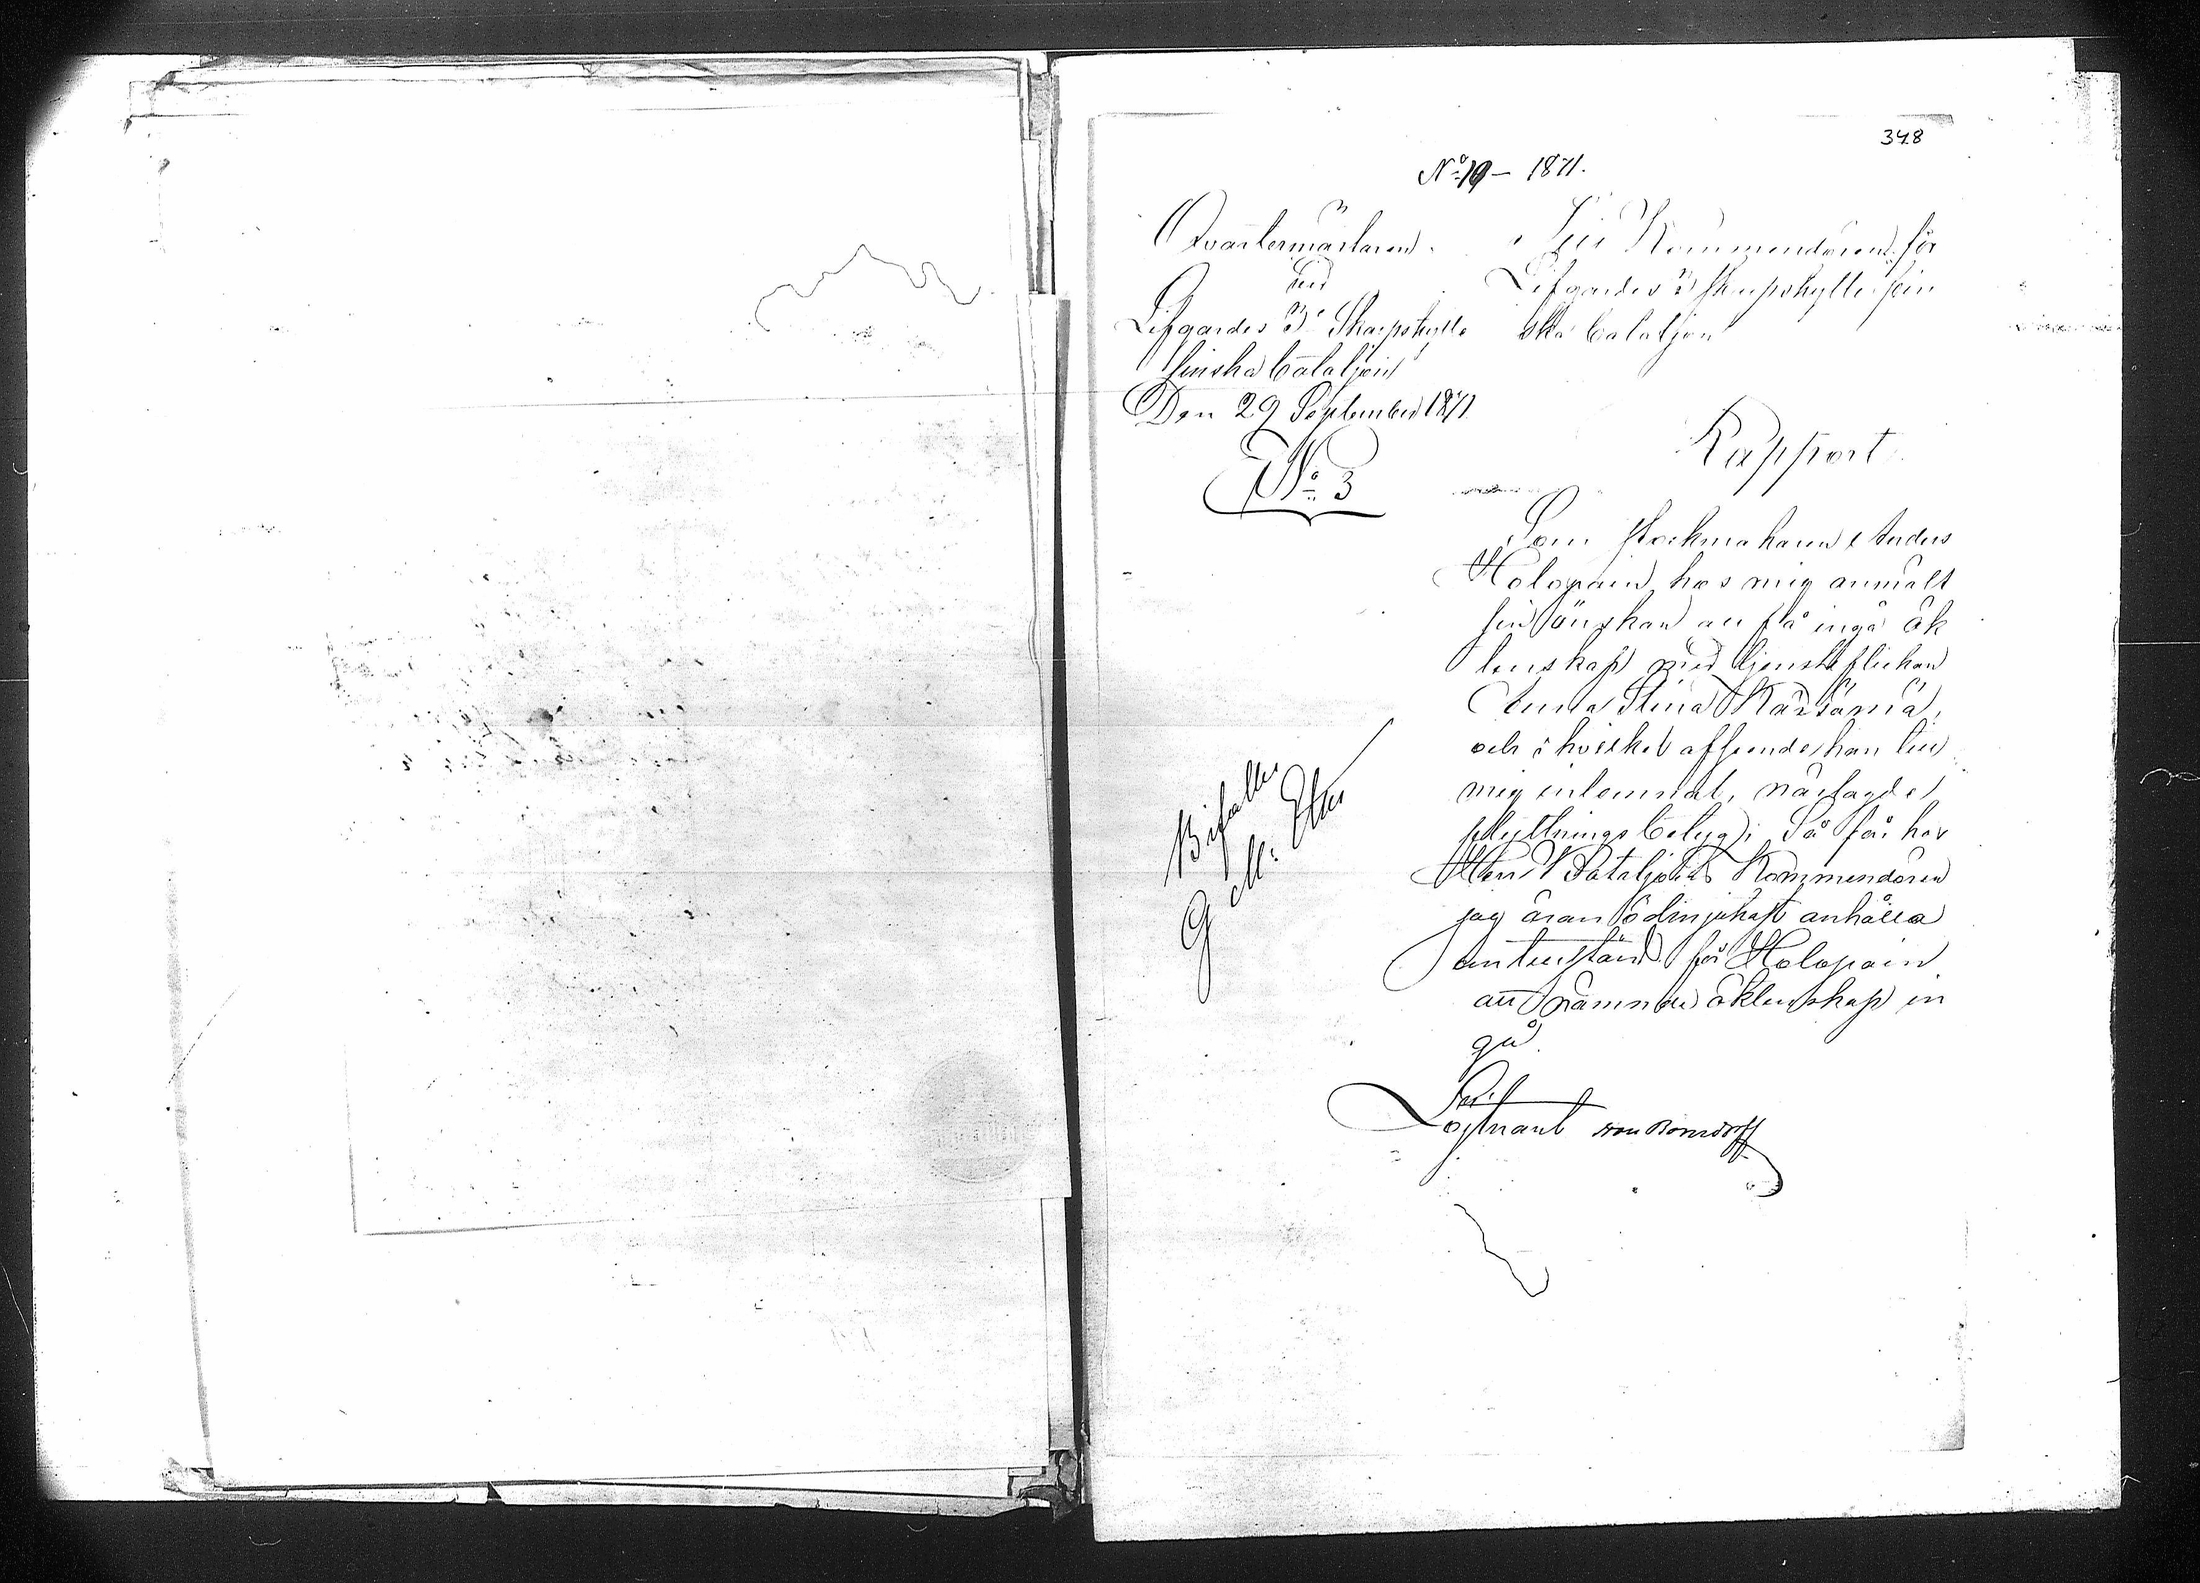 348
No 19 – 1871.
Qvartermästaren
vid
Lifgardes 3e Skarpskytte
finska bataljon
Den 29 September 1871
No 3
Till Kommendören för
Lifgardes 3e skarpskytte fin
ska bataljon
Rapport
Som stockmakaren Anders
Holopain hos mig anmält
sin önskan att få ingå äk
tenskap med tjensteflickan
Anna Stina
och i hvilket afseende han till
mig inlemnat, närlagde
flyttningsbetyg; Så får hos
Herr Bataljons Kommendören
jag äran ödmjukast anhålla
om tillstånd för Holopain
att nämnde äktenskap in
gå
Löjtnant von Bonsdorff
Bifalles
G. M: